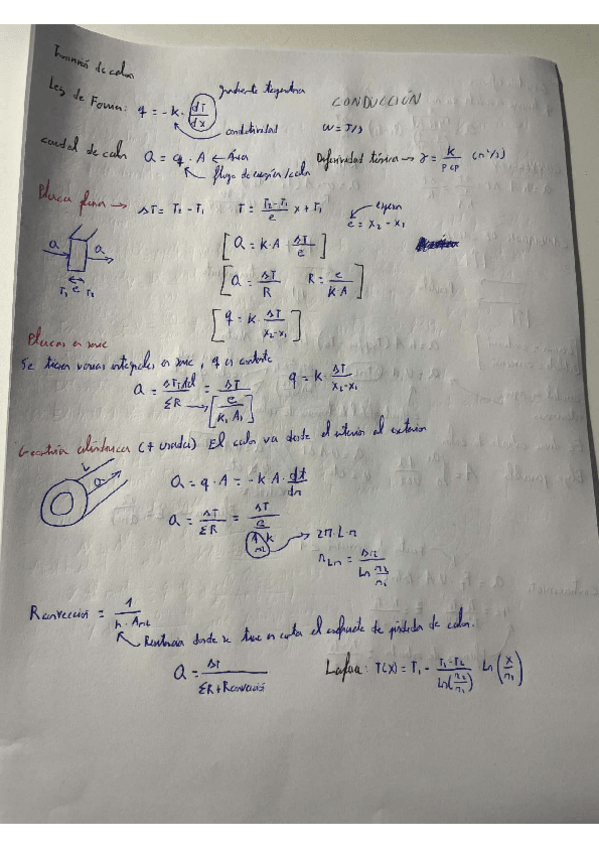 de calor
Ley de Fourier: q = -k · dT/dx gradiente temperatura
conductividad
CONDUCCIÓN
W = J/s
caudal de calor Q = q · A ← Área
flujo de energía/calor
Difusividad térmica → γ = k/ρ cp (m²/s)
Placa plana → ΔT = T2 - T1 T = T2-T1/e x + T1
espesor
e = x2 - x1
Q Q
T1 e T2
[Q = K·A ΔT/e]
[Q = ΔT/R R = e/K·A]
[q = k · ΔT/x2-x1]
Placas en serie
Se tienen varias en serie, q es constante
Q = /ΣR = ΔT/[e/K1 A1] q = k · ΔT/x2-x1
Geometría cilíndrica (+ usadas) El calor va desde el interior al exterior
L
Q
Q = q · A = -k A · dt/dr
Q = ΔT/ΣR = ΔT/(e/A k) → 2π · L · r
rLn = Δr/Ln r2/r1
Rconvección = 1/h · Am2
Resistencia donde se tiene en cuenta el de pérdida de calor.
Q = ΔT/ΣR+Rconvección
T(x) = T1 - T1-T2/Ln(r2/r1) · Ln (x/r1)